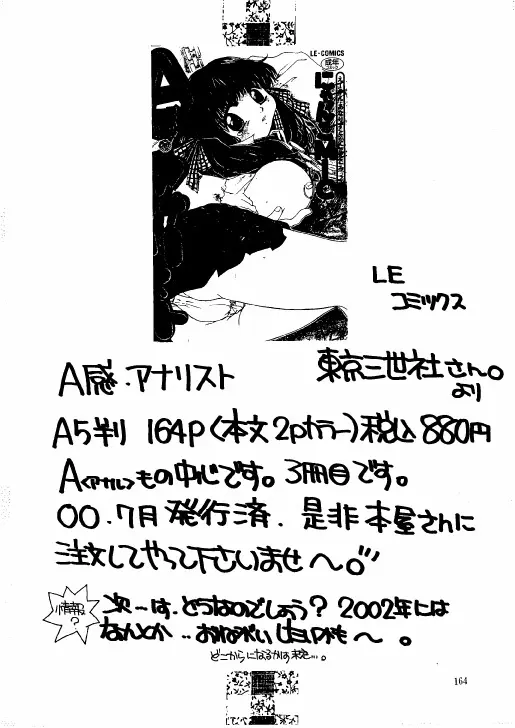 LE-COMICS
成年
LE
コミックス
A感・アナリスト
東京三世社さん。
より
A5判 164P〈本文2Pカラー〉税込880円
A〈アナル〉もの中心です。3冊目です。
00.7月発行済.是非本屋さんに
注文してやって下さいませ〜。
情報?
次ーは、どうなのでしょう?2002年には
なんとか‥
どこからになるかは
164